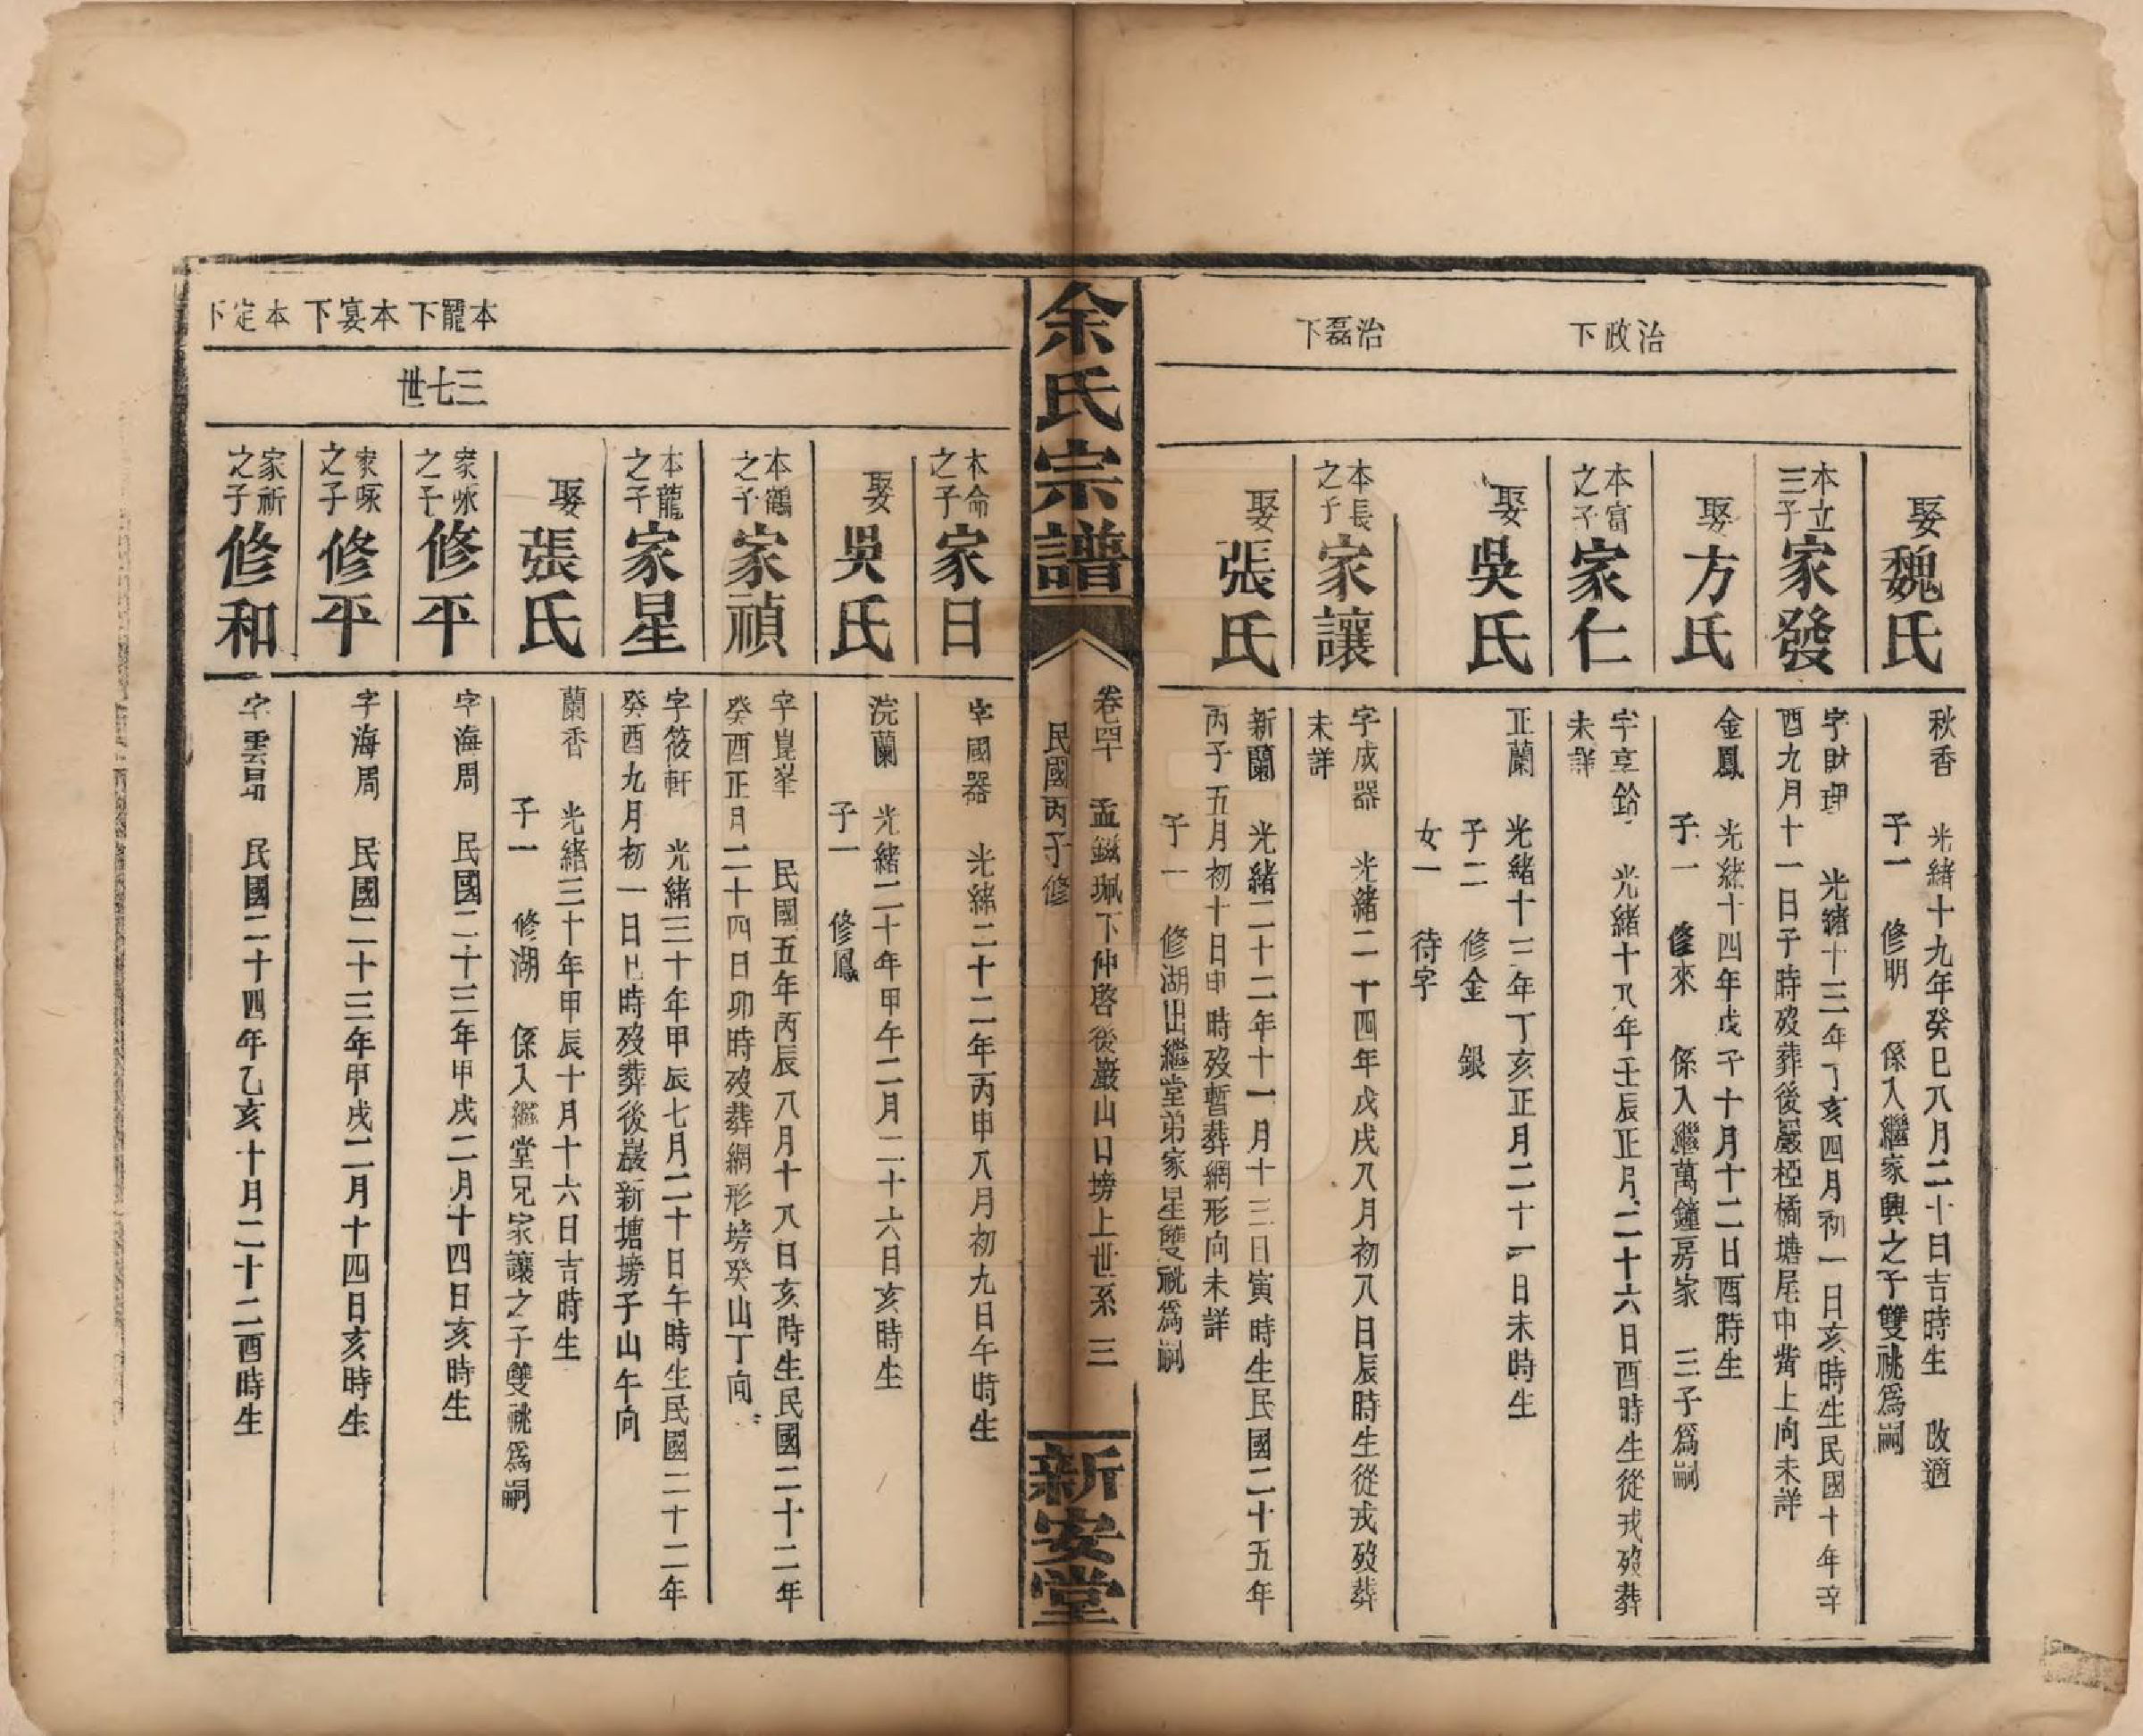 治政下
治磊下
娶魏氏
秋香　光緒十九年癸巳八月二十日吉時生　改適
子一　修明　係入繼家興之子雙祧爲嗣
本立三子家發
字財理　光緒十三年丁亥四月初一日亥時生民國十年辛
酉九月十一日子時歿葬後巖椏橘塘尾中嘴上向未詳
娶方氏
金鳳　光緒十四年戊子十月十二日酉時生
子一　修來　係入繼萬鐘房家　三子爲嗣
本富之子家仁
字享鈴　光緒十八年壬辰正月二十六日酉時生從戎歿葬
未詳
娶吳氏
正蘭　光緒十三年丁亥正月二十一日未時生
子二　修金　銀
女一　待字
本長之子家讓
字成器　光緒二十四年戊戌八月初八日辰時生從戎歿葬
未詳
娶張氏
新蘭　光緒二十二年十一月十三日寅時生民國二十五年
丙子五月初十日申時歿暫葬網形向未詳
子一　修湖出繼堂弟家星雙祧爲嗣
余氏宗譜
卷四十　孟鎡珮下仲啓後巖山口塝上世系　三
民國丙子修
新安堂
本龍下
本宴下
本定下
三七世
本命之子家日
字國器　光緒二十二年丙申八月初九日午時生
娶吳氏
浣蘭　光緒二十年甲午二月二十六日亥時生
子一　修鳳
本鶴之子家禎
字崑峯　民國五年丙辰八月十八日亥時生民國二十二年
癸酉正月二十四日卯時歿葬網形塝癸山丁向
本龍之子家星
字筱軒　光緒三十年甲辰七月二十日午時生民國二十二年
癸酉九月初一日巳時歿葬後巖新塘塝子山午向
娶張氏
蘭香　光緒三十年甲辰十月十六日吉時生
子一　修湖　係入繼堂兄家讓之子雙祧爲嗣
家咏之子修平
字海周　民國二十三年甲戌二月十四日亥時生
家咏之子修平
字海周　民國二十三年甲戌二月十四日亥時生
家祈之子修和
字雲昂　民國二十四年乙亥十月二十二酉時生